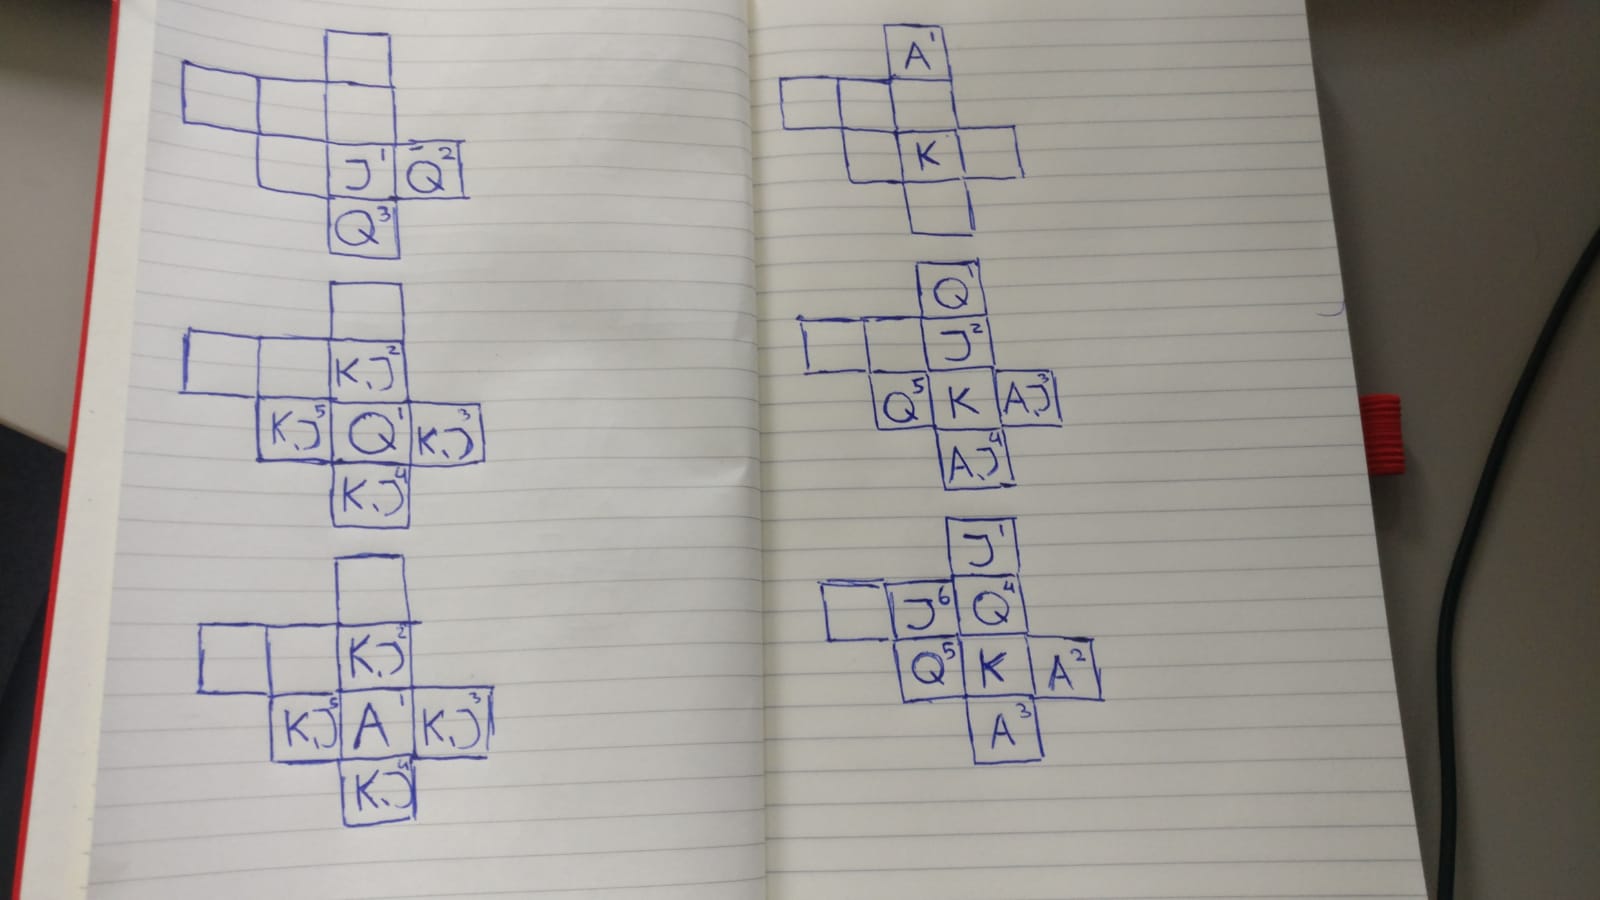 J¹ Q²
Q³
KJ²
KJ⁵ Q¹ KJ³
KJ⁴
KJ²
KJ⁵ A¹ KJ³
KJ⁴
A¹
K
Q¹
J²
Q⁵ K AJ³
AJ⁴
J¹
J⁶ Q⁴
Q⁵ K A²
A³